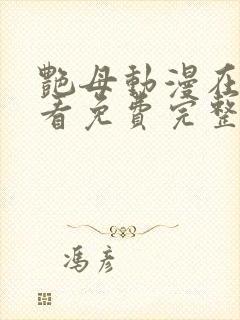 艷母動漫在
看免費完整
馮彥